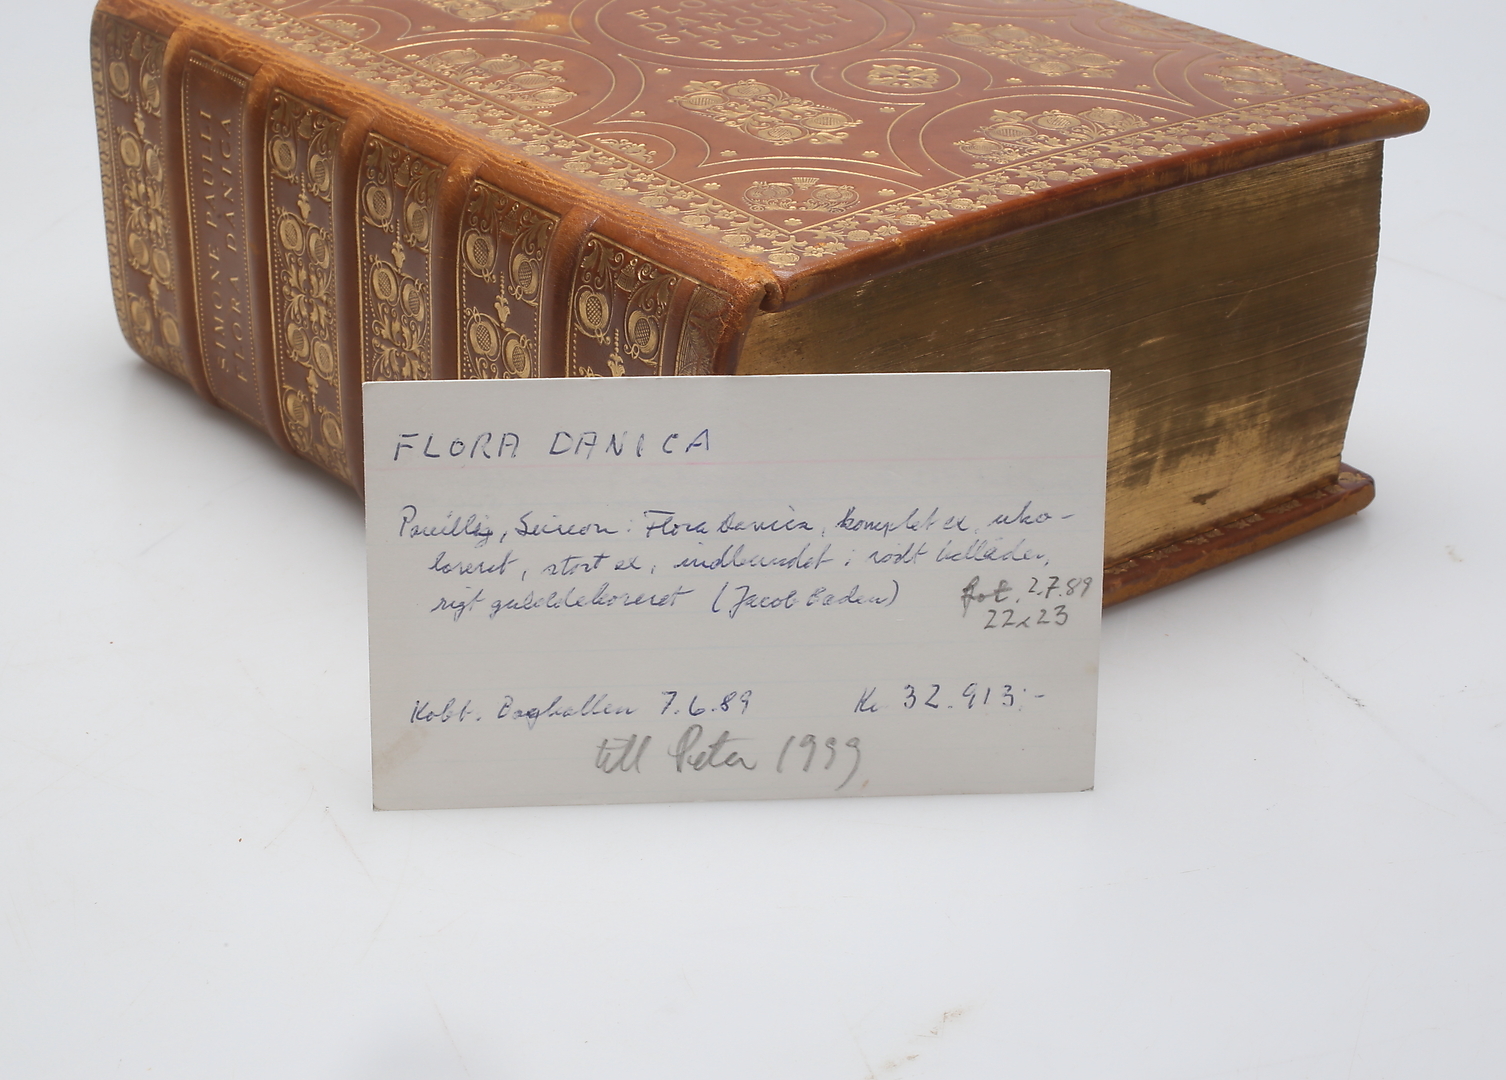 SIMONE PAULLI
FLORA DANICA
S. PAULLI
1648
FLORA DANICA
Paullig, Simon: Flora Danica, komplet ex, uko-
loreret, stort ex, indbundet i rødt helläder,
rigt gulddekoreret (Jacob Baden)
fot. 2.7.89
22x23
Kobt. Boghallen 7.6.89 Kr 32.913:-
till Peter 1999